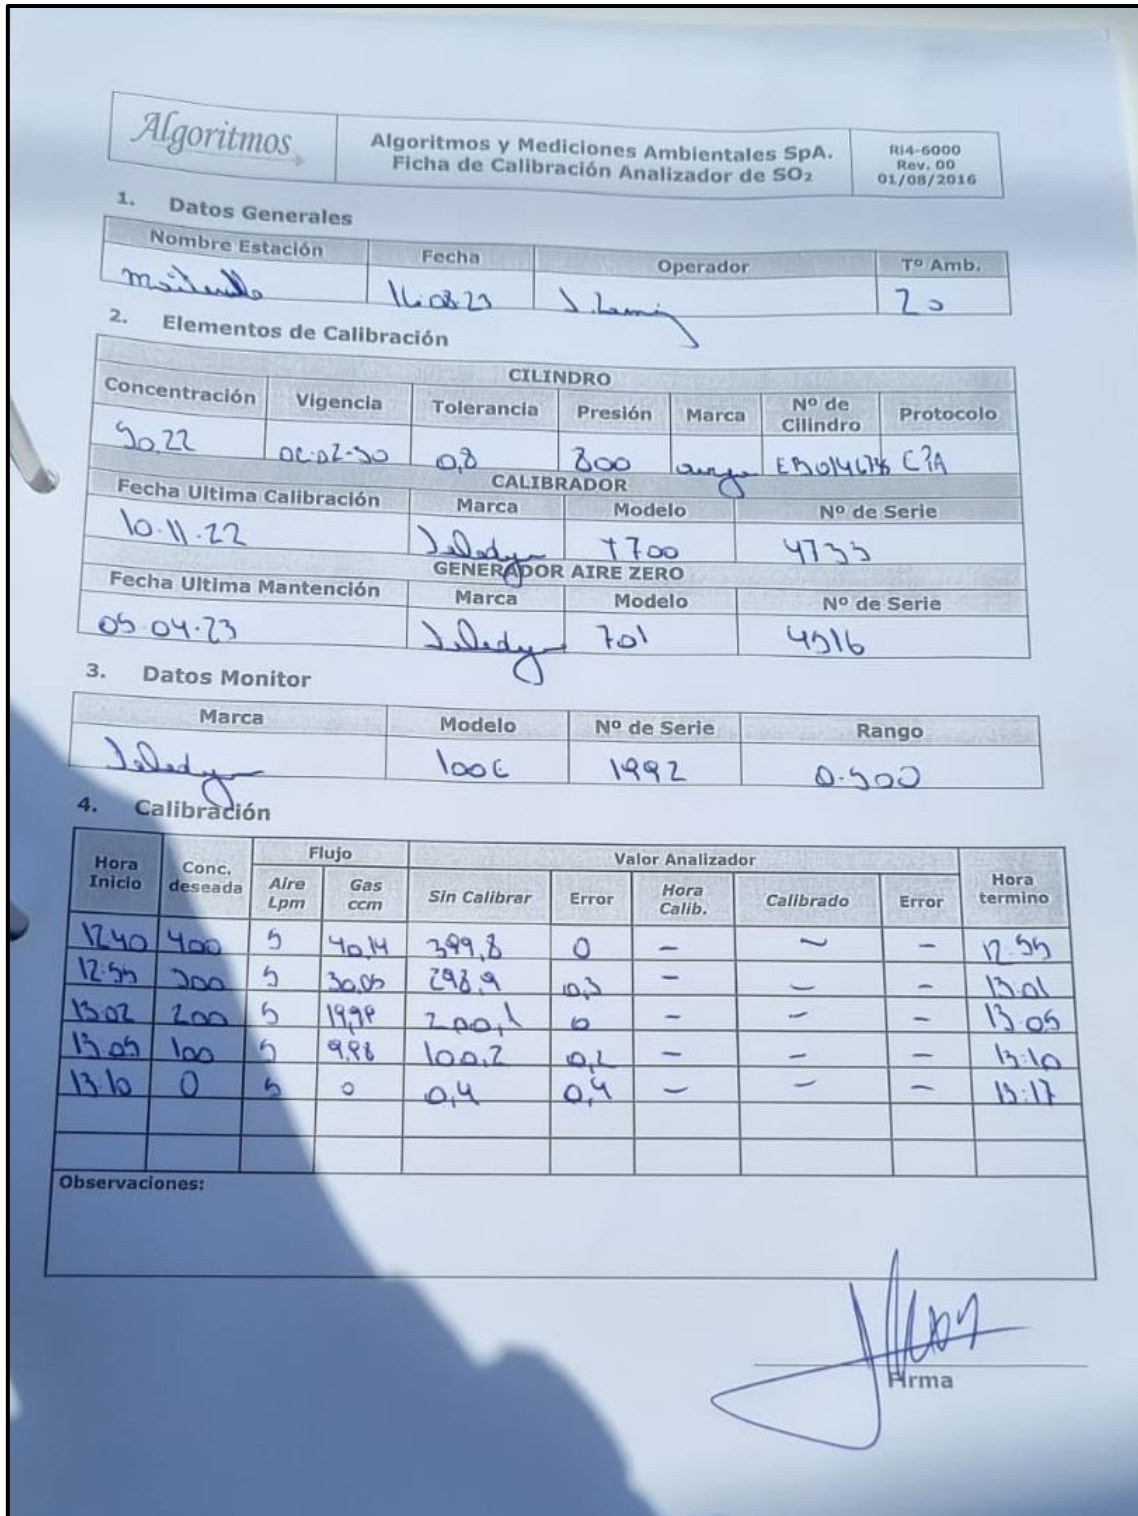 Algoritmos
Algoritmos y Mediciones Ambientales SpA.
Ficha de Calibración Analizador de SO₂
RI4-6000
Rev. 00
01/08/2016
1. Datos Generales
Nombre Estación Fecha Operador Tº Amb.
20
2. Elementos de Calibración
CILINDRO
Concentración Vigencia Tolerancia Presión Marca Nº de Cilindro Protocolo
0,8 800
CALIBRADOR
Fecha Ultima Calibración Marca Modelo Nº de Serie
10.11.22 Teledyne T700
GENERADOR AIRE ZERO
Fecha Ultima Mantención Marca Modelo Nº de Serie
05.04.23 Teledyne 701
3. Datos Monitor
Marca Modelo Nº de Serie Rango
Teledyne 100E 1992 0-500
4. Calibración
Hora Inicio Conc. deseada Flujo Valor Analizador Hora termino
Aire Lpm Gas ccm Sin Calibrar Error Hora Calib. Calibrado Error
12:40 400 5 40,14 399,8 0 - - - 12:55
12:55 300 5 30,05 298,9 0,3 - - - 13:01
13:02 200 5 200,1 0 - - - 13:05
13:05 100 5 9,98 100,2 0,2 - - - 13:10
13:10 0 5 0 0,4 0,4 - - - 13:17
Observaciones:
Firma